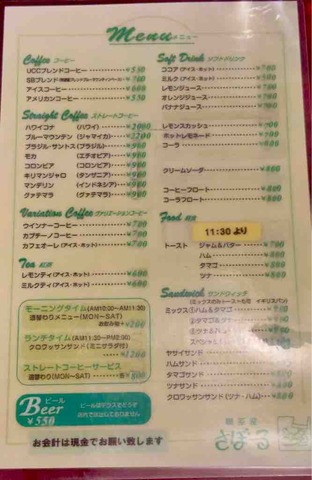 Menu メニュー
Coffee コーヒー
UCCブレンドコーヒー ¥550
SBブレンド ¥700
アイスコーヒー ¥600
アメリカンコーヒー ¥550
Straight Coffee ストレートコーヒー
ハワイコナ (ハワイ) ¥2000
ブルーマウンテン (ジャマイカ) ¥2200
ブラジル・サントス(ブラジル) ¥900
モカ (エチオピア) ¥900
コロンビア (コロンビア) ¥900
キリマンジャロ (タンザニア) ¥900
マンデリン (インドネシア) ¥900
グァテマラ (グァテマラ) ¥900
Variation Coffee ヴァリエーションコーヒー
ウインナーコーヒー ¥700
カプチーノコーヒー ¥700
カフェオーレ(アイス・ホット) ¥700
Tea 紅茶
レモンティ(アイス・ホット) ¥600
ミルクティ(アイス・ホット) ¥600
モーニングタイム(AM10:00~AM11:30)
日替わりメニュー(MON~SAT)
+¥200
ランチタイム(AM11:30~PM2:30)
クロワッサンサンド(ミニサラダ付)
¥1200
ストレートコーヒーサービス
日替わり(MON~SAT) ¥800
Beer ビール
¥550
お会計は現金でお願い致します
Soft Drink ソフトドリンク
ココア(アイス・ホット) ¥700
ミルク(アイス・ホット)
レモンジュース ¥700
オレンジジュース ¥700
バナナジュース
レモンスカッシュ ¥700
ホットレモネード ¥700
コーラ
クリームソーダ ¥800
コーヒーフロート ¥800
コーラフロート ¥800
Food 軽食
11:30 より
トースト ジャム&バター ¥700
ハム ¥800
タマゴ ¥800
ツナ ¥800
Sandwich サンドウィッチ
(ミックスのみトースト可 イギリスパン)
ミックス①ハム&タマゴ
②タマゴ&ツナ
③ツナ&ハム
ヤサイサンド
ハムサンド
タマゴサンド
ツナサンド
クロワッサンサンド(ツナ・ハム) ¥800
喫茶屋
さぼーる